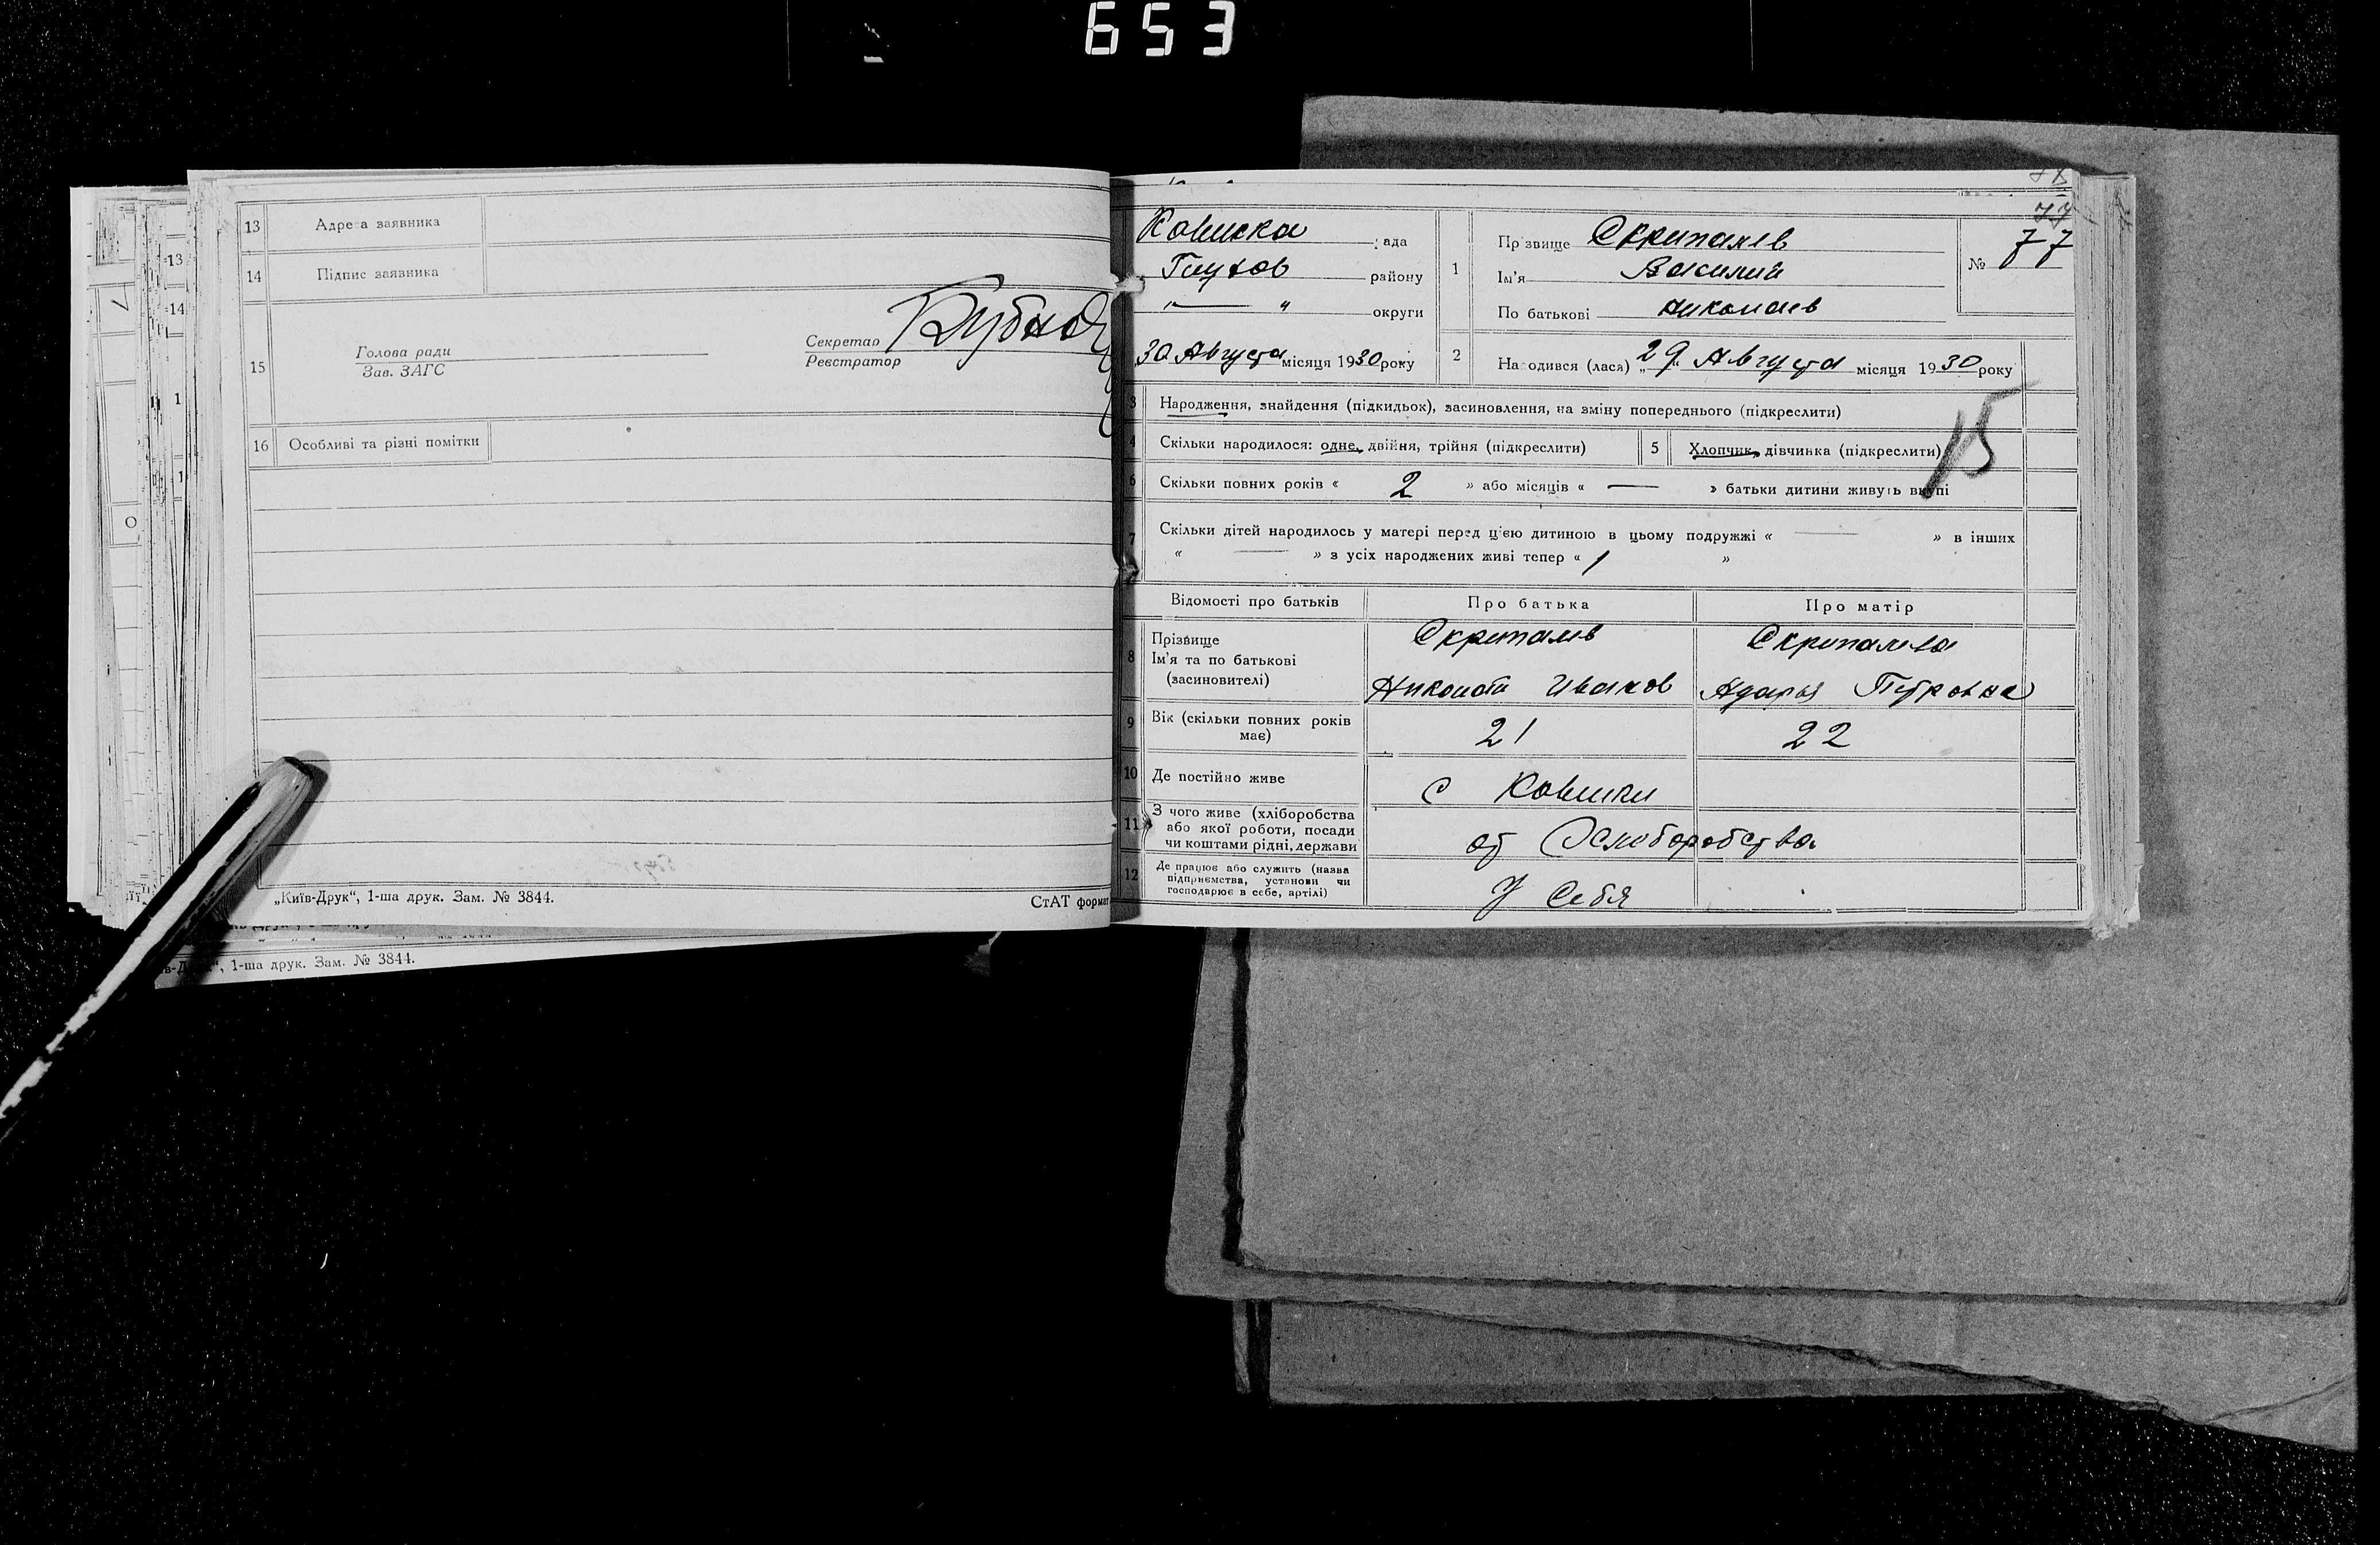 653
13 Адреса заявника
14 Підпис заявника
15 Голова ради
Зав. ЗАГС
Секретар
Реєстратор
16 Особливі та різні помітки
„Київ-Друк“, 1-ша друк. Зам. № 3844.
СтАТ формат
1-ша друк. Зам. № 3844.
77
рада
Глухов району
„ — „ округи
30 Августа місяця 1930 року
1 Прізвище Скрипалев
Ім'я Василий
По батькові Николаев
№ 77
2 Народився (лася) „29“ Августа місяця 1930 року
3 Народження, знайдення (підкидьок), засиновлення, на зміну попереднього (підкреслити)
4 Скільки народилося: одне, двійня, трійня (підкреслити)
5 Хлопчик, дівчинка (підкреслити)
15
6 Скільки повних років « 2 » або місяців « — » батьки дитини живуть вкупі
7 Скільки дітей народилось у матері перед цією дитиною в цьому подружжі « — » в інших
« — » з усіх народжених живі тепер « 1 »
Відомості про батьків Про батька Про матір
8 Прізвище
Ім'я та по батькові
(засиновителі)
Скрипалев
Николай Иванов
Скрипалева
Петровна
9 Вік (скільки повних років
має)
21
22
10 Де постійно живе
с
11 З чого живе (хліборобства
або якої роботи, посади
чи коштами рідні, держави
от
12 Де працює або служить (назва
підприємства, установи чи
господарює в себе, артілі)
У Себя